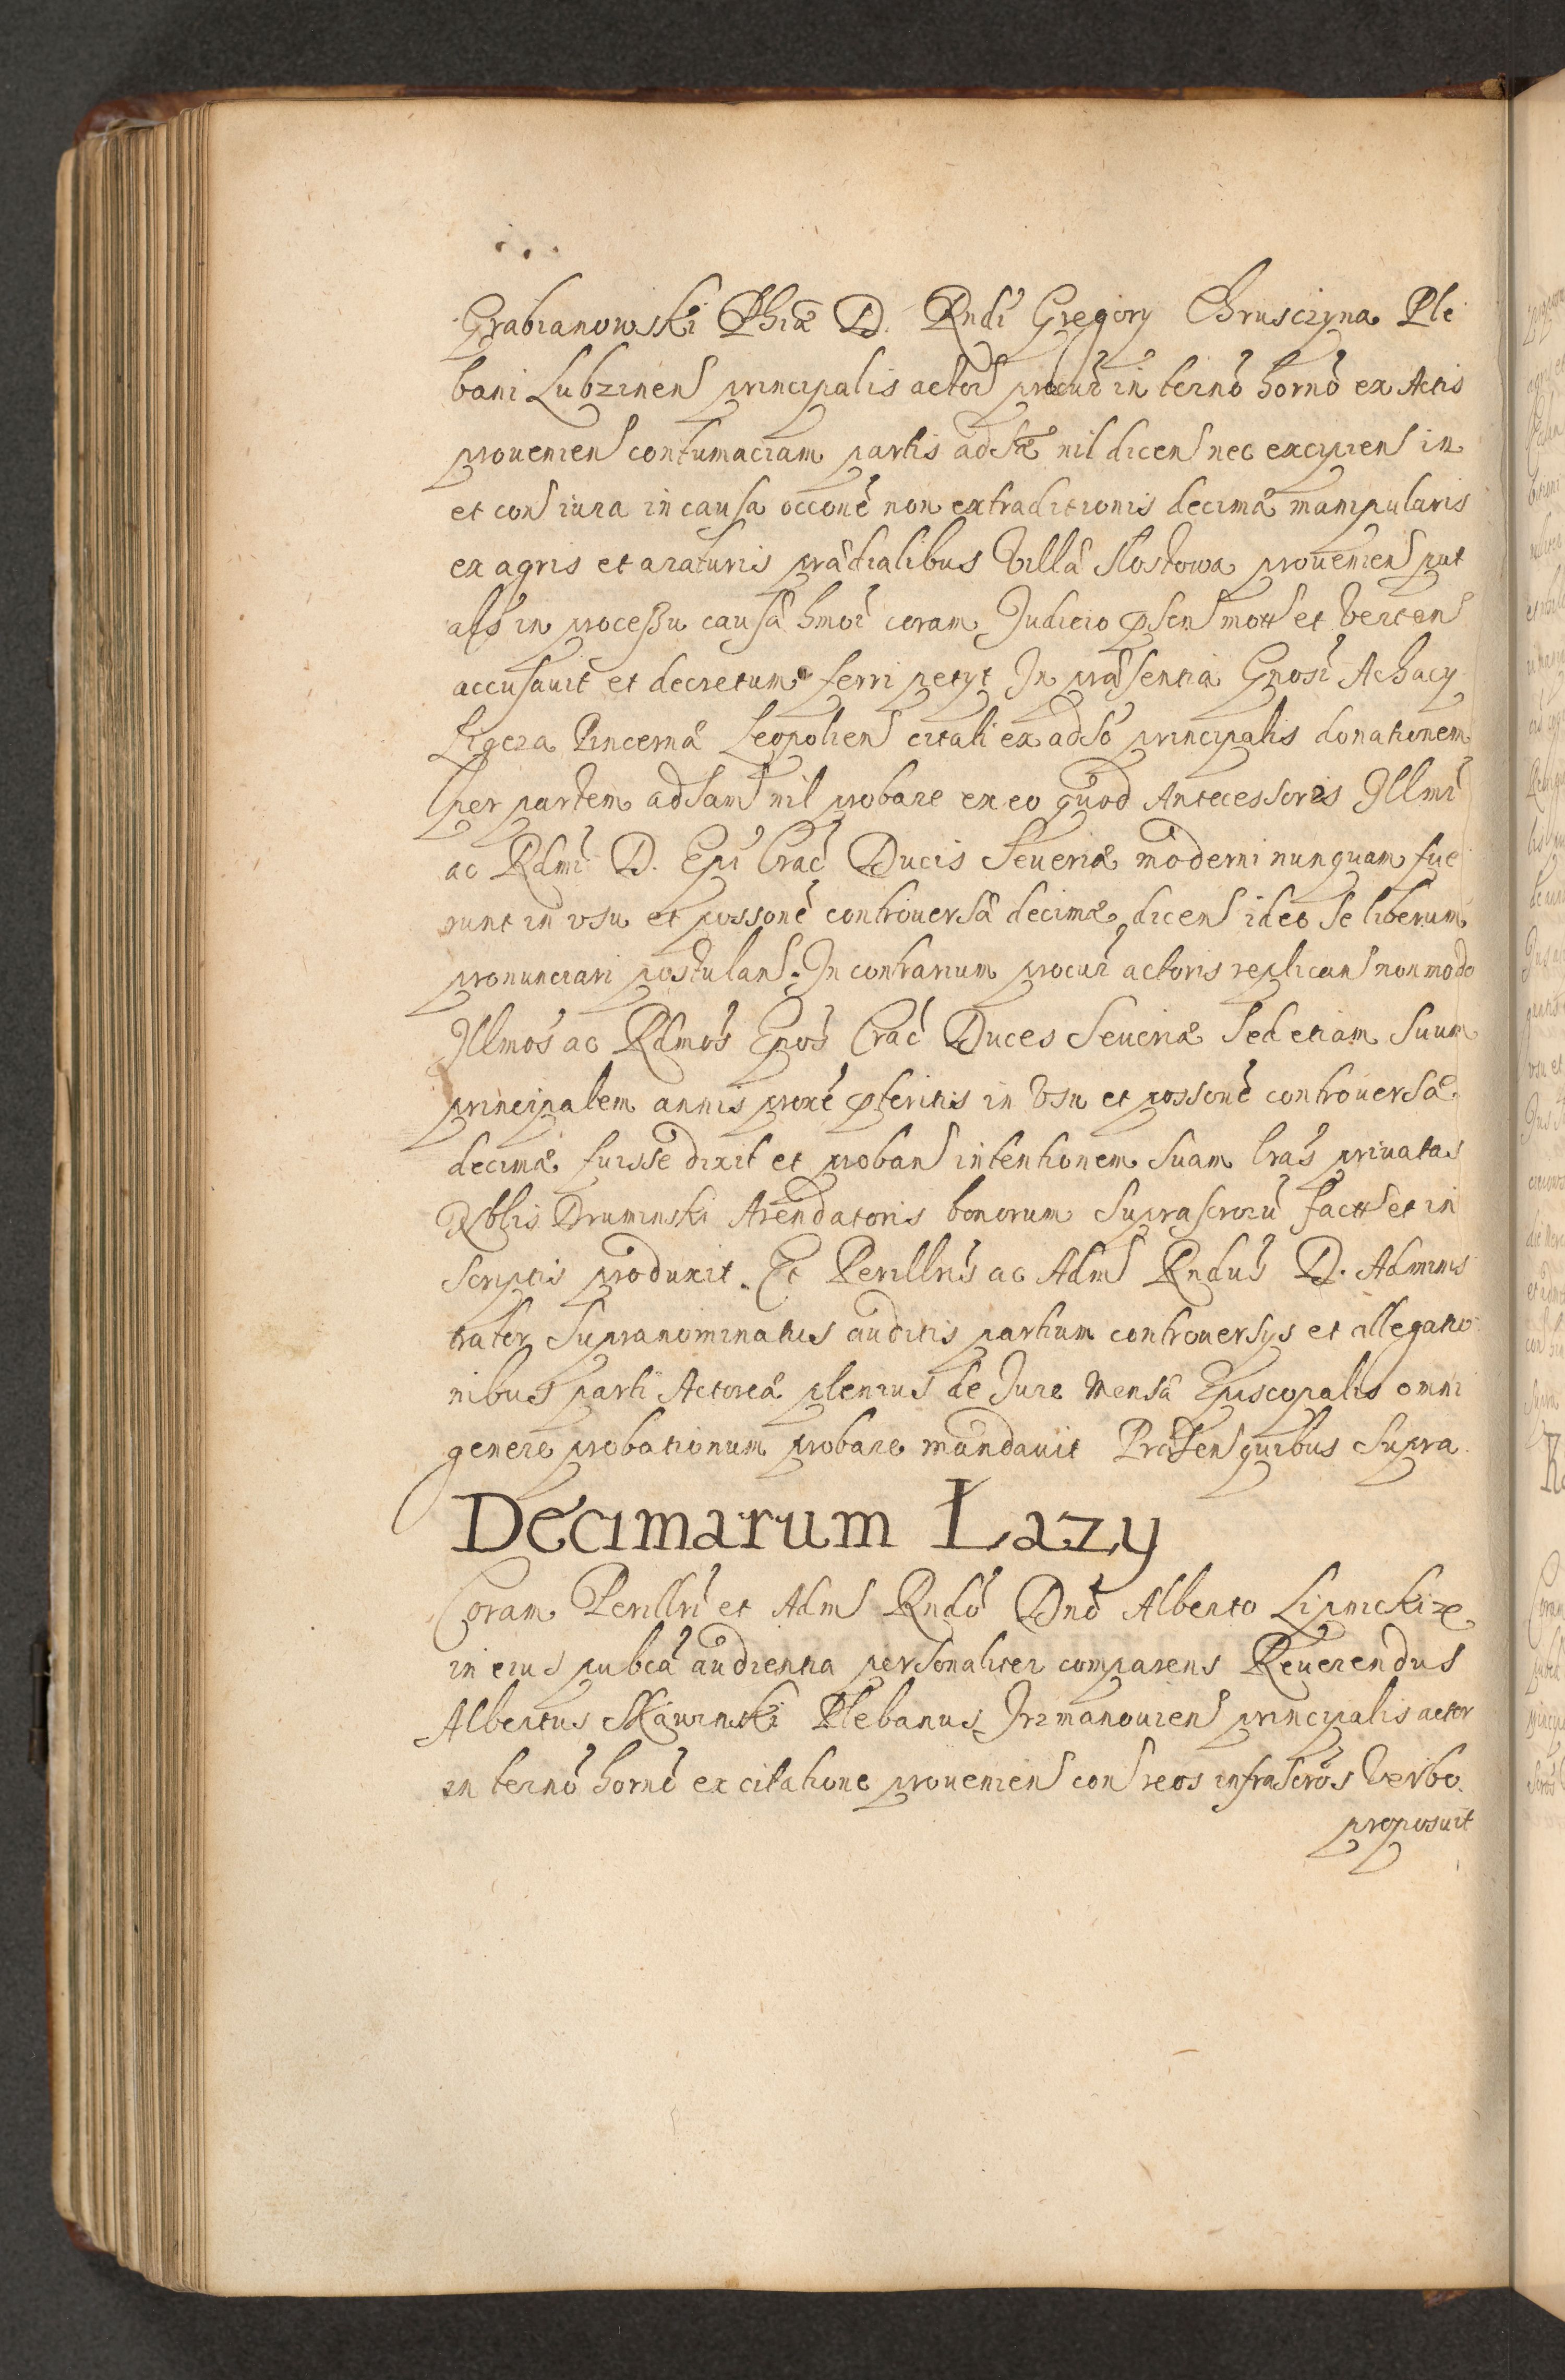 Grabianowski Phiæ D. Rndi Gregory Chrusczyna Ple
bani Lubzinens principalis actoris procur in termo horno ex Actis
proveniens contumaciam partis adsæ nil dicens nec excipiens in
et cons iura in causa occone non extraditionis decimæ manipularis
ex agris et araturis prædialibus Villæ Slostowa proveniens put
alss in processu causæ hmoi coram Judicio psens mott et Vertens
accusavit et decretum ferri petyt In præsentia Gnosi Achacy
Ligeza Pincernæ Leopoliens citati ex adso principalis donationem
per partem adsam nil probare ex eo quod Antecessores Illmi
ac Rdmi D. Epi Crac Ducis Severiæ moderni nunquam fue
runt in vsu et possone controversæ decimæ dicens ideo se liberum
pronunciari postulans. In contrarium procur actoris replicans non modo
Illmos ac Rdmos Epos Crac Duces Severiæ sed etiam suum
principalem annis proxe pteritis in Vsu et possone controversæ
decimæ fuisse dixit et probans intentionem suam lras privatas
Nblis Druminski Arendatoris bonorum suprascroru factt et in
scriptis produxit. Et Perillris ac Adm Rndus D. Adminis
trator supranominatus auditis partium controversys et allegatio
nibus parti Actoreæ plenius de Jure Mensæ Episcopalis omni
genere probationum probare mandavit Præsen quibus supra
Decimarum Lazy
Coram Perillri et Adm Rndo Dno Alberto Lipnicki &
in eius pubca audientia personaliter comparens Reverendus
Albertus Skawinski Plebanus Irzmanoviens principalis actor
in termo horno ex citatione proveniens cons reos infrascros Verbo
proposuit